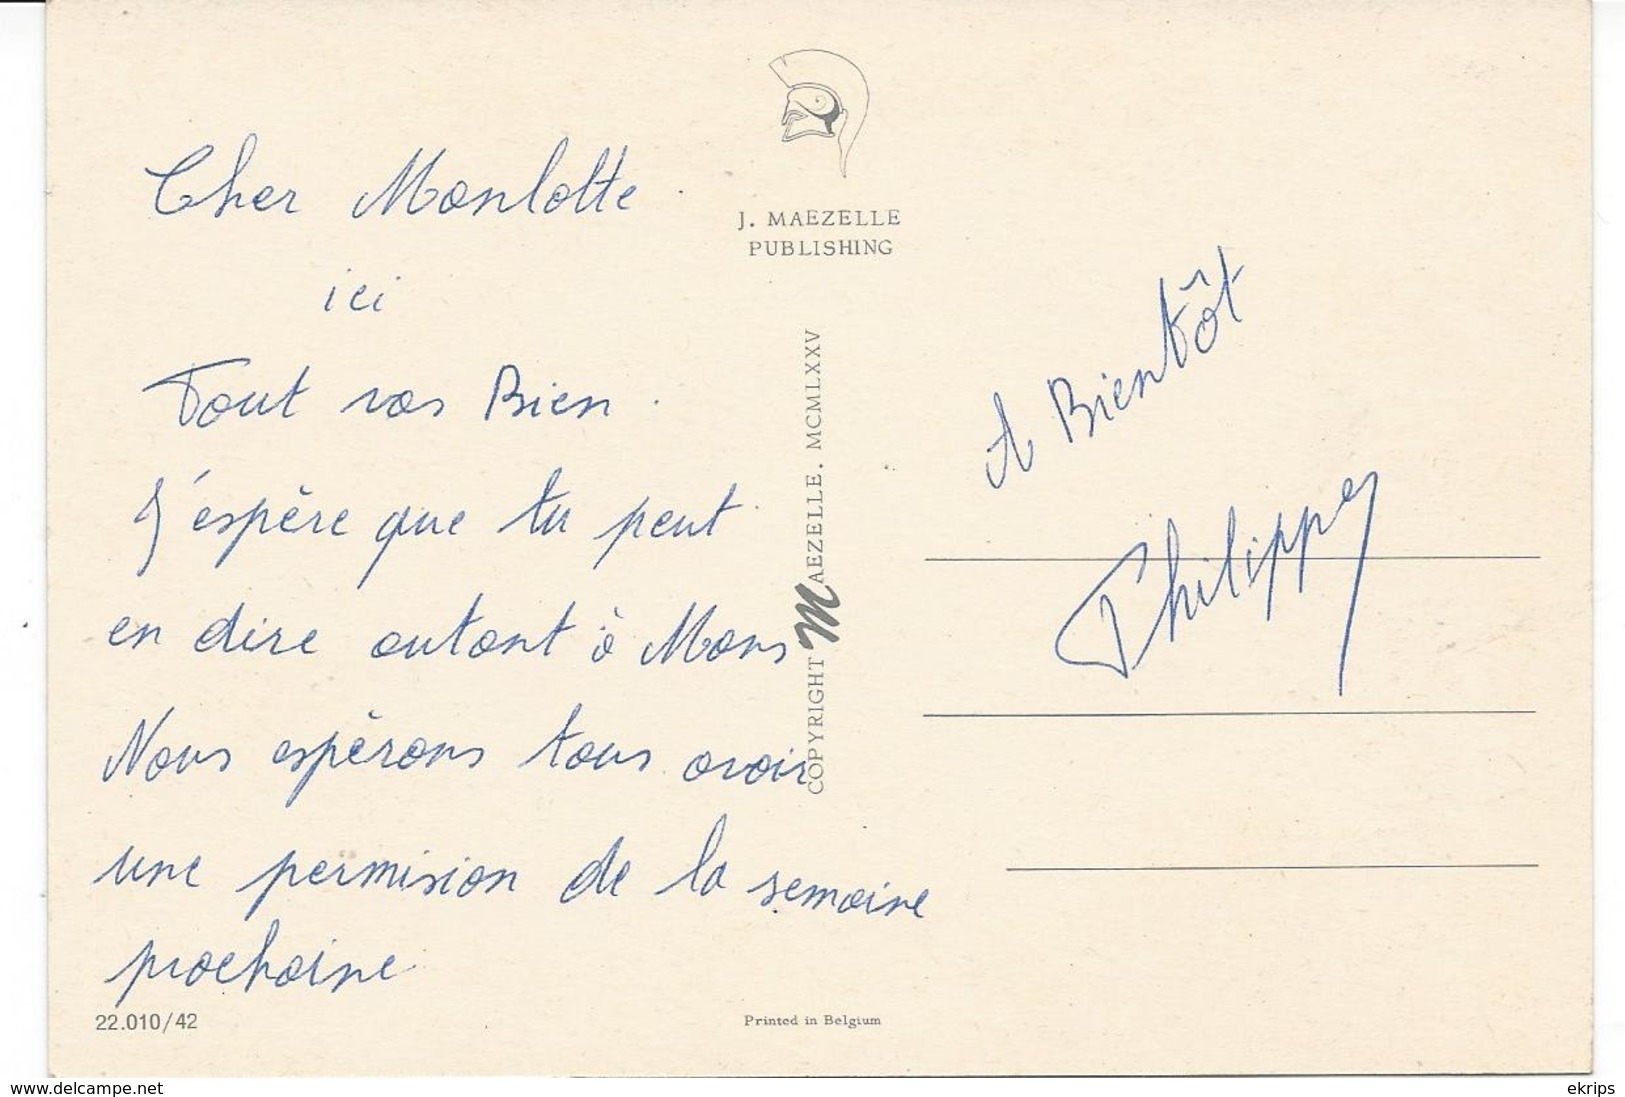 Cher Monlotte
ici
Tout vas Bien.
J'espère que tu peut
en dire autant à Mons
Nous espèrons tous avoir
une permision de la semaine
prochaine
22.010/42
J. MAEZELLE
PUBLISHING
COPYRIGHT MAEZELLE. MCMLXXV
Printed in Belgium
A Bientôt
Philippe
www.delcampe.net
ekrips